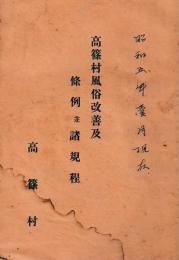 昭和五年壹月現在
高篠村風俗改善及
條例並諸規程
高篠村